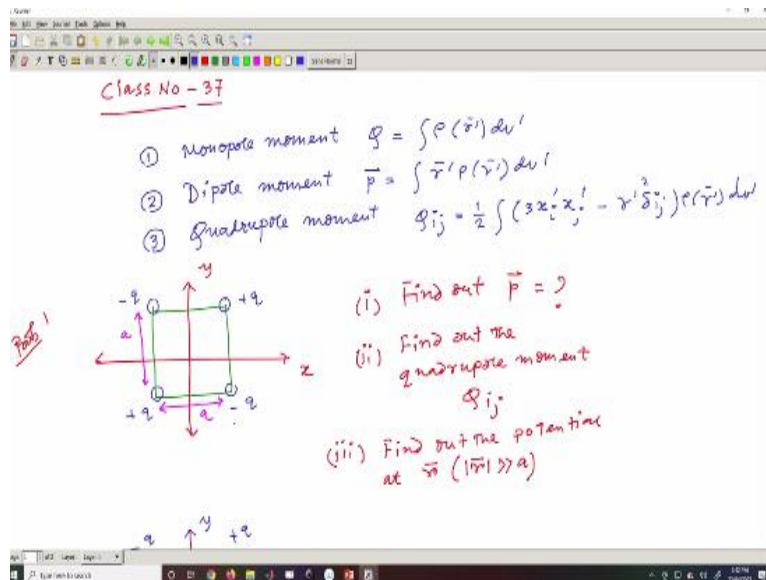 Class No - 37
① Monopole moment Q = ∫ρ(r̄')dv'
② Dipole moment p⃗ = ∫ r̄'ρ(r̄')dv'
③ Quadrupole moment Qij = 1/2 ∫(3x'i x'j - r'²δij)ρ(r̄')dv'
y
-q
+q
a
x
+q
a
-q
(i) Find out p⃗ = ?
(ii) Find out the
quadrupole moment
Qij
(iii) Find out the potential
at r̄ (|r̄| >> a)
-q
y
+q
Type here to search